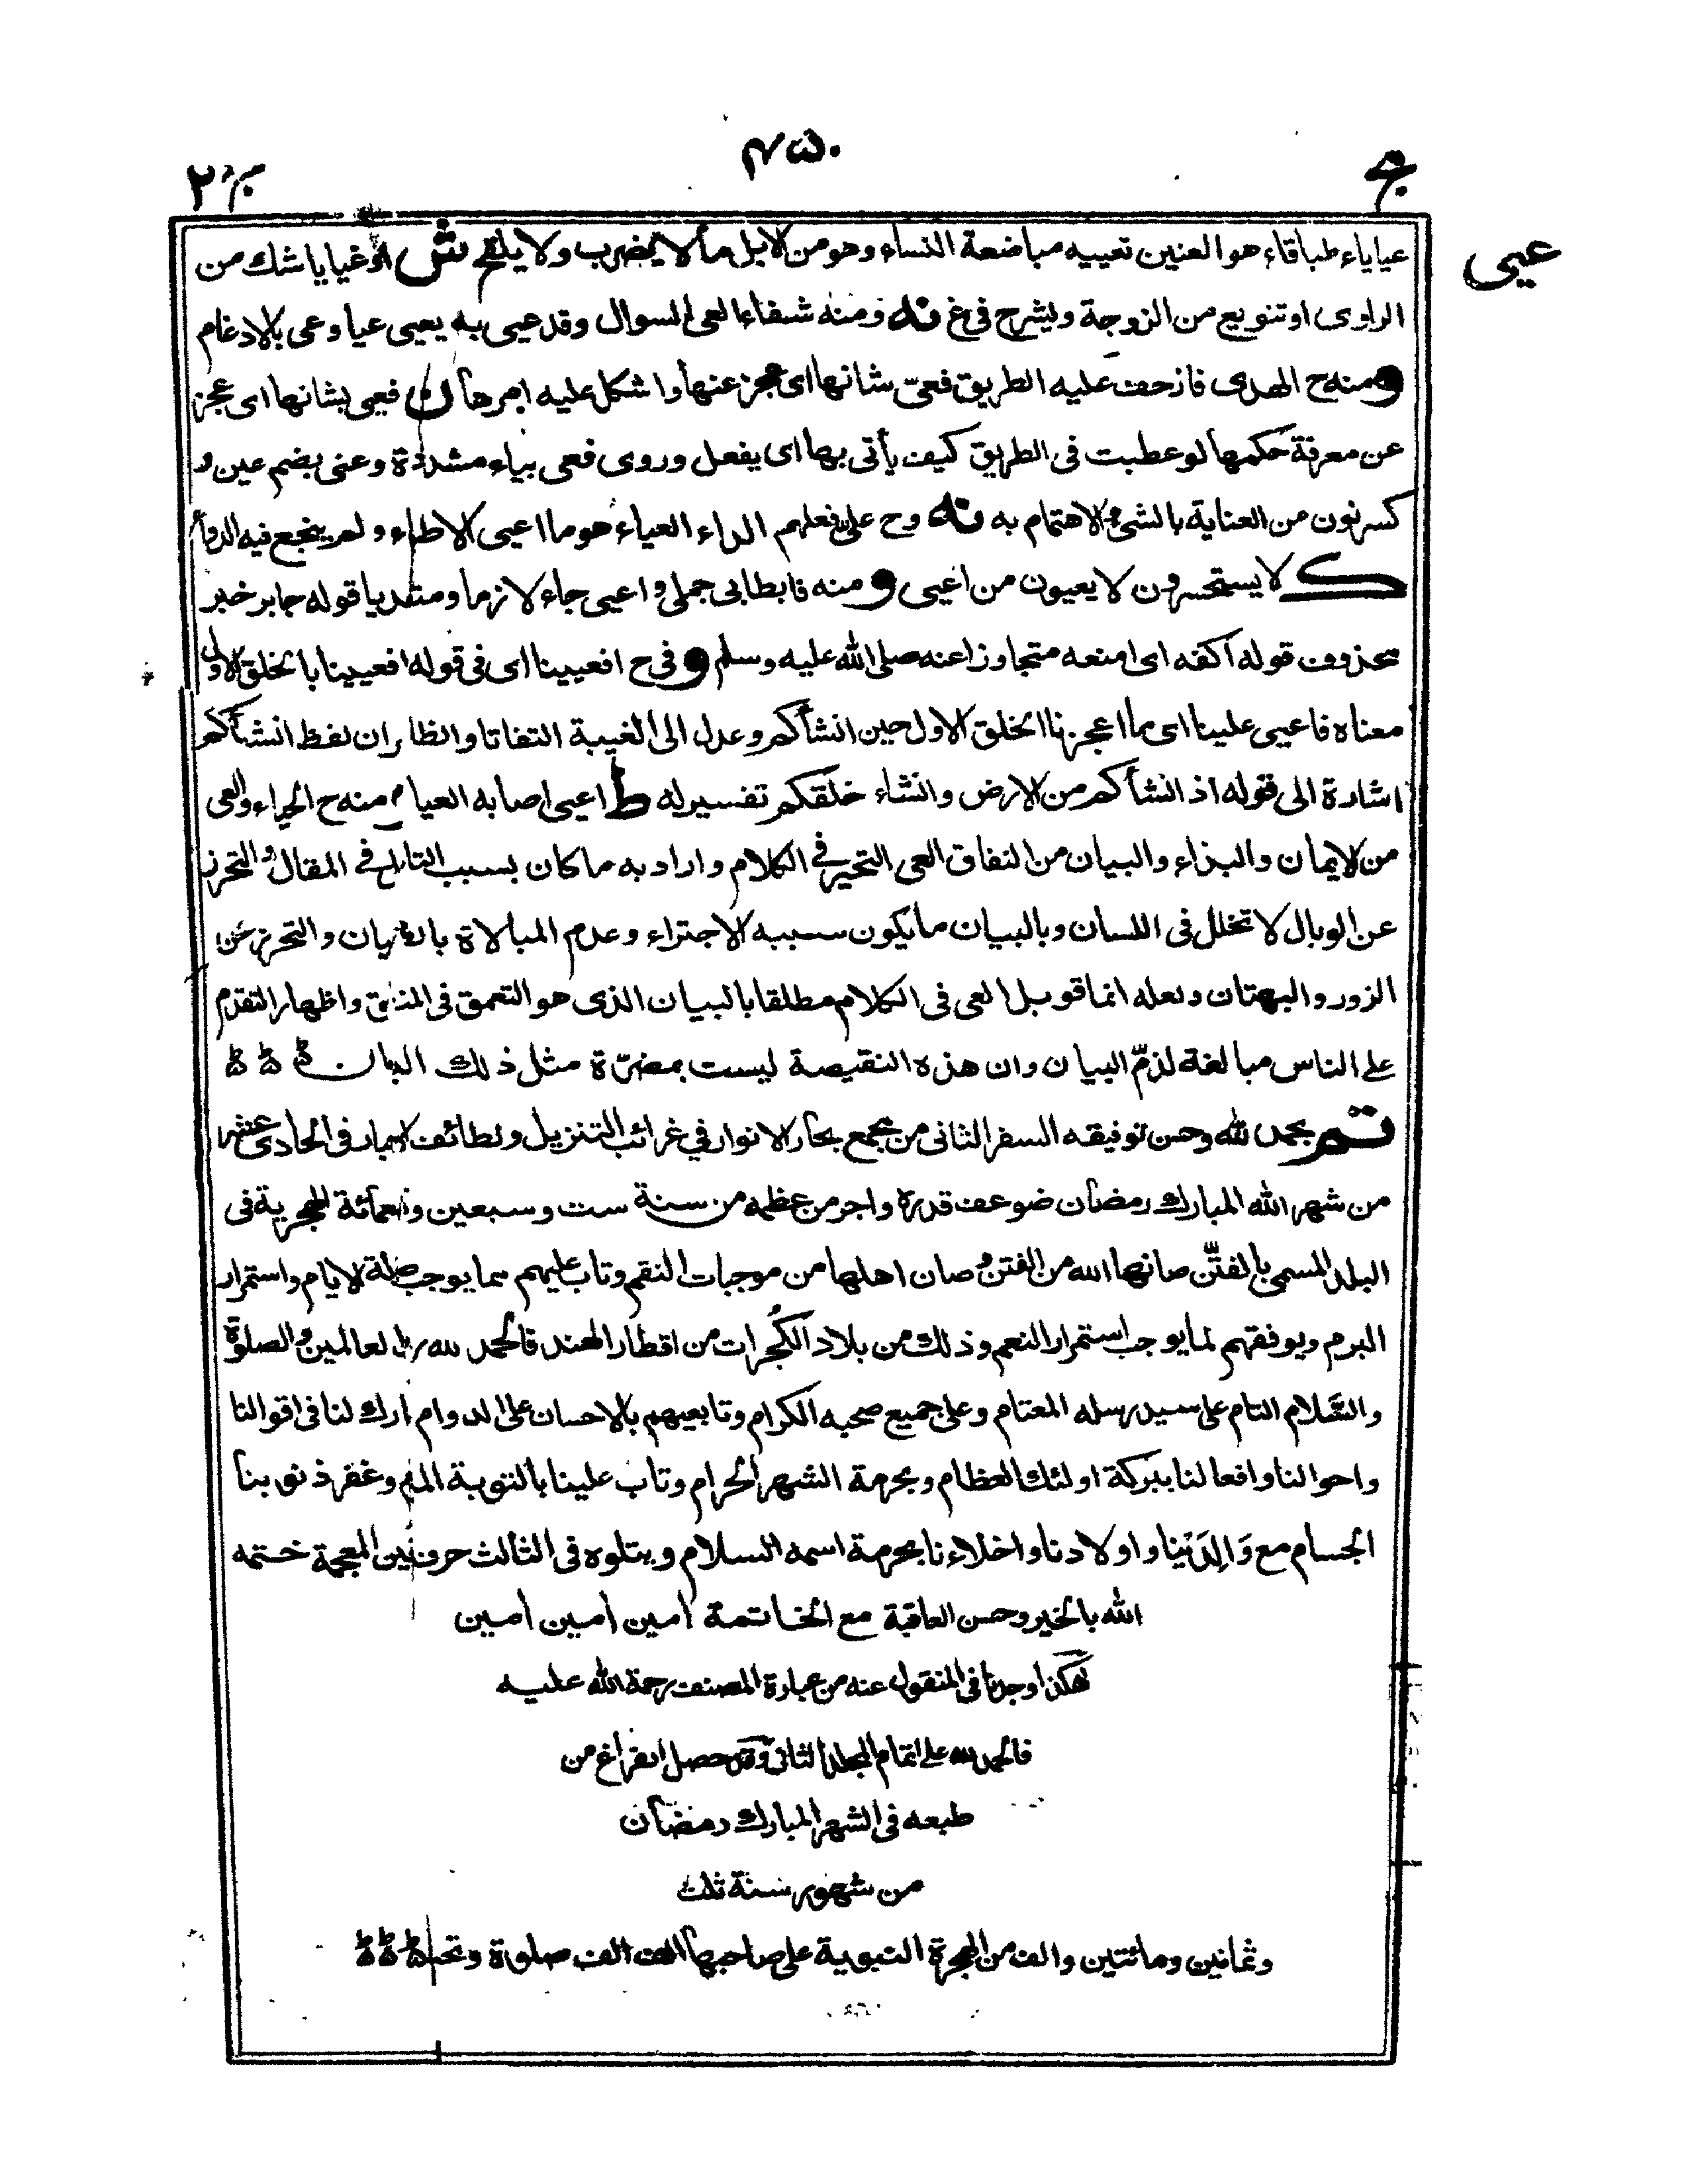 ٤٥٠
عيى
عياياء طباقاء هو العنين تعييه مباضعة النساء وهو من الابل ما لا يضرب ولا يلقح ش او غيايا شك من
الراوى او تنويع من الزوجة ويشرح فى غ نه ومنه شفاء العى السوال وقد عيى به يعيى عيا وعى بالادغام
ومنه ح الهدى فازحفت عليه الطريق فعىّ شانها اى عجز عنها واشكل عليه امرها ن فعيى بشانها اى عجز
عن معرفة حكمها لو عطبت فى الطريق كيف يأتى بها اى يفعل وروى فعى بياء مشددة وعنى بضم عين و
كسر نون من العناية بالشئ والاهتمام به نه وح على فعلهم الداء العياء هو ما اعيى الاطباء ولم ينجع فيه الدواء
ك لا يستحسرون لا يعيون من اعيى و منه فابطا بى جملى واعيى جاء لازما ومتعديا قوله جابر خبر
محذوف قوله اكفه اى امنعه متجاوزا عنه صلى الله عليه وسلم و فى ح افعيينا اى فى قوله افعيينا بالخلق الاول
معناه فاعيى علينا اى ما اعجزنا الخلق الاول حين انشأكم وعدل الى الغيبة التفاتا والظاهر ان لفظ انشأكم
اشارة الى قوله اذ انشأكم من الارض وانشاء خلقكم تفسير له ط اعيى اصابه العيا م منه ح الحياء والعى
من الايمان والبذاء والبيان من النفاق العى التحير فى الكلام واراد به ما كان بسبب التامل فى المقال والتحرز
عن الوبال لا تخلل فى اللسان وبالبيان ما يكون سببه الاجتراء وعدم المبالاة بالطغيان والتحرز عن
الزور والبهتان ولعله انما قوبل العى فى الكلام مطلقا بالبيان الذى هو التعمق فى المنطق واظهار التقدم
على الناس مبالغة لذمّ البيان وان هذه النقيصة ليست بمضرّة مثل ذلك البيان
تم بحمد لله وحسن توفيقه السفر الثانى من مجمع بحار الانوار فى غرائب التنزيل ولطائف الاخبار فى الحادى عشر
من شهر الله المبارك رمضان ضوعف قدره واجر من عظمه من سنة ست وسبعين وتسعمائة الهجرية فى
البلد المسمى بالفتّن صانها الله من الفتن وصان اهلها من موجبات النقم وتاب عليهم مما يوجب ضلة الايام واستمرار
البرم ويوفقهم لما يوجب استمرار النعم وذلك من بلاد الكُجرات من اقطار الهند فالحمد لله رب العالمين والصلوة
والسّلام التام على سيد رسله المعتام وعلى جميع صحبه الكرام وتابعيهم بالاحسان على الدوام بارك لنا فى اقوالنا
واحوالنا وافعالنا ببركة اولئك العظام وبحرمة الشهر الحرام وتاب علينا بالتوبة المم وغفر ذنوبنا
الجسام مع وَالِدَيْنا واولادنا واخلاءنا بحرمة اسمه السلام ويتلوه فى الثالث حرف غين المعجمة ختمه
الله بالخير وحسن العاقبة مع الخاتمة أمين أمين أمين
هكذا وجدنا فى المنقول عنه من عبارة المصنف رحمة الله عليه
فالحمد لله على اتمام المجلد الثانى وقد حصل الفراغ من
طبعه فى الشهر المبارك رمضان
من شهور سنة ثلث
وثمانين ومائتين والف من الهجرة النبوية على صاحبها الف الف صلوة وتحية